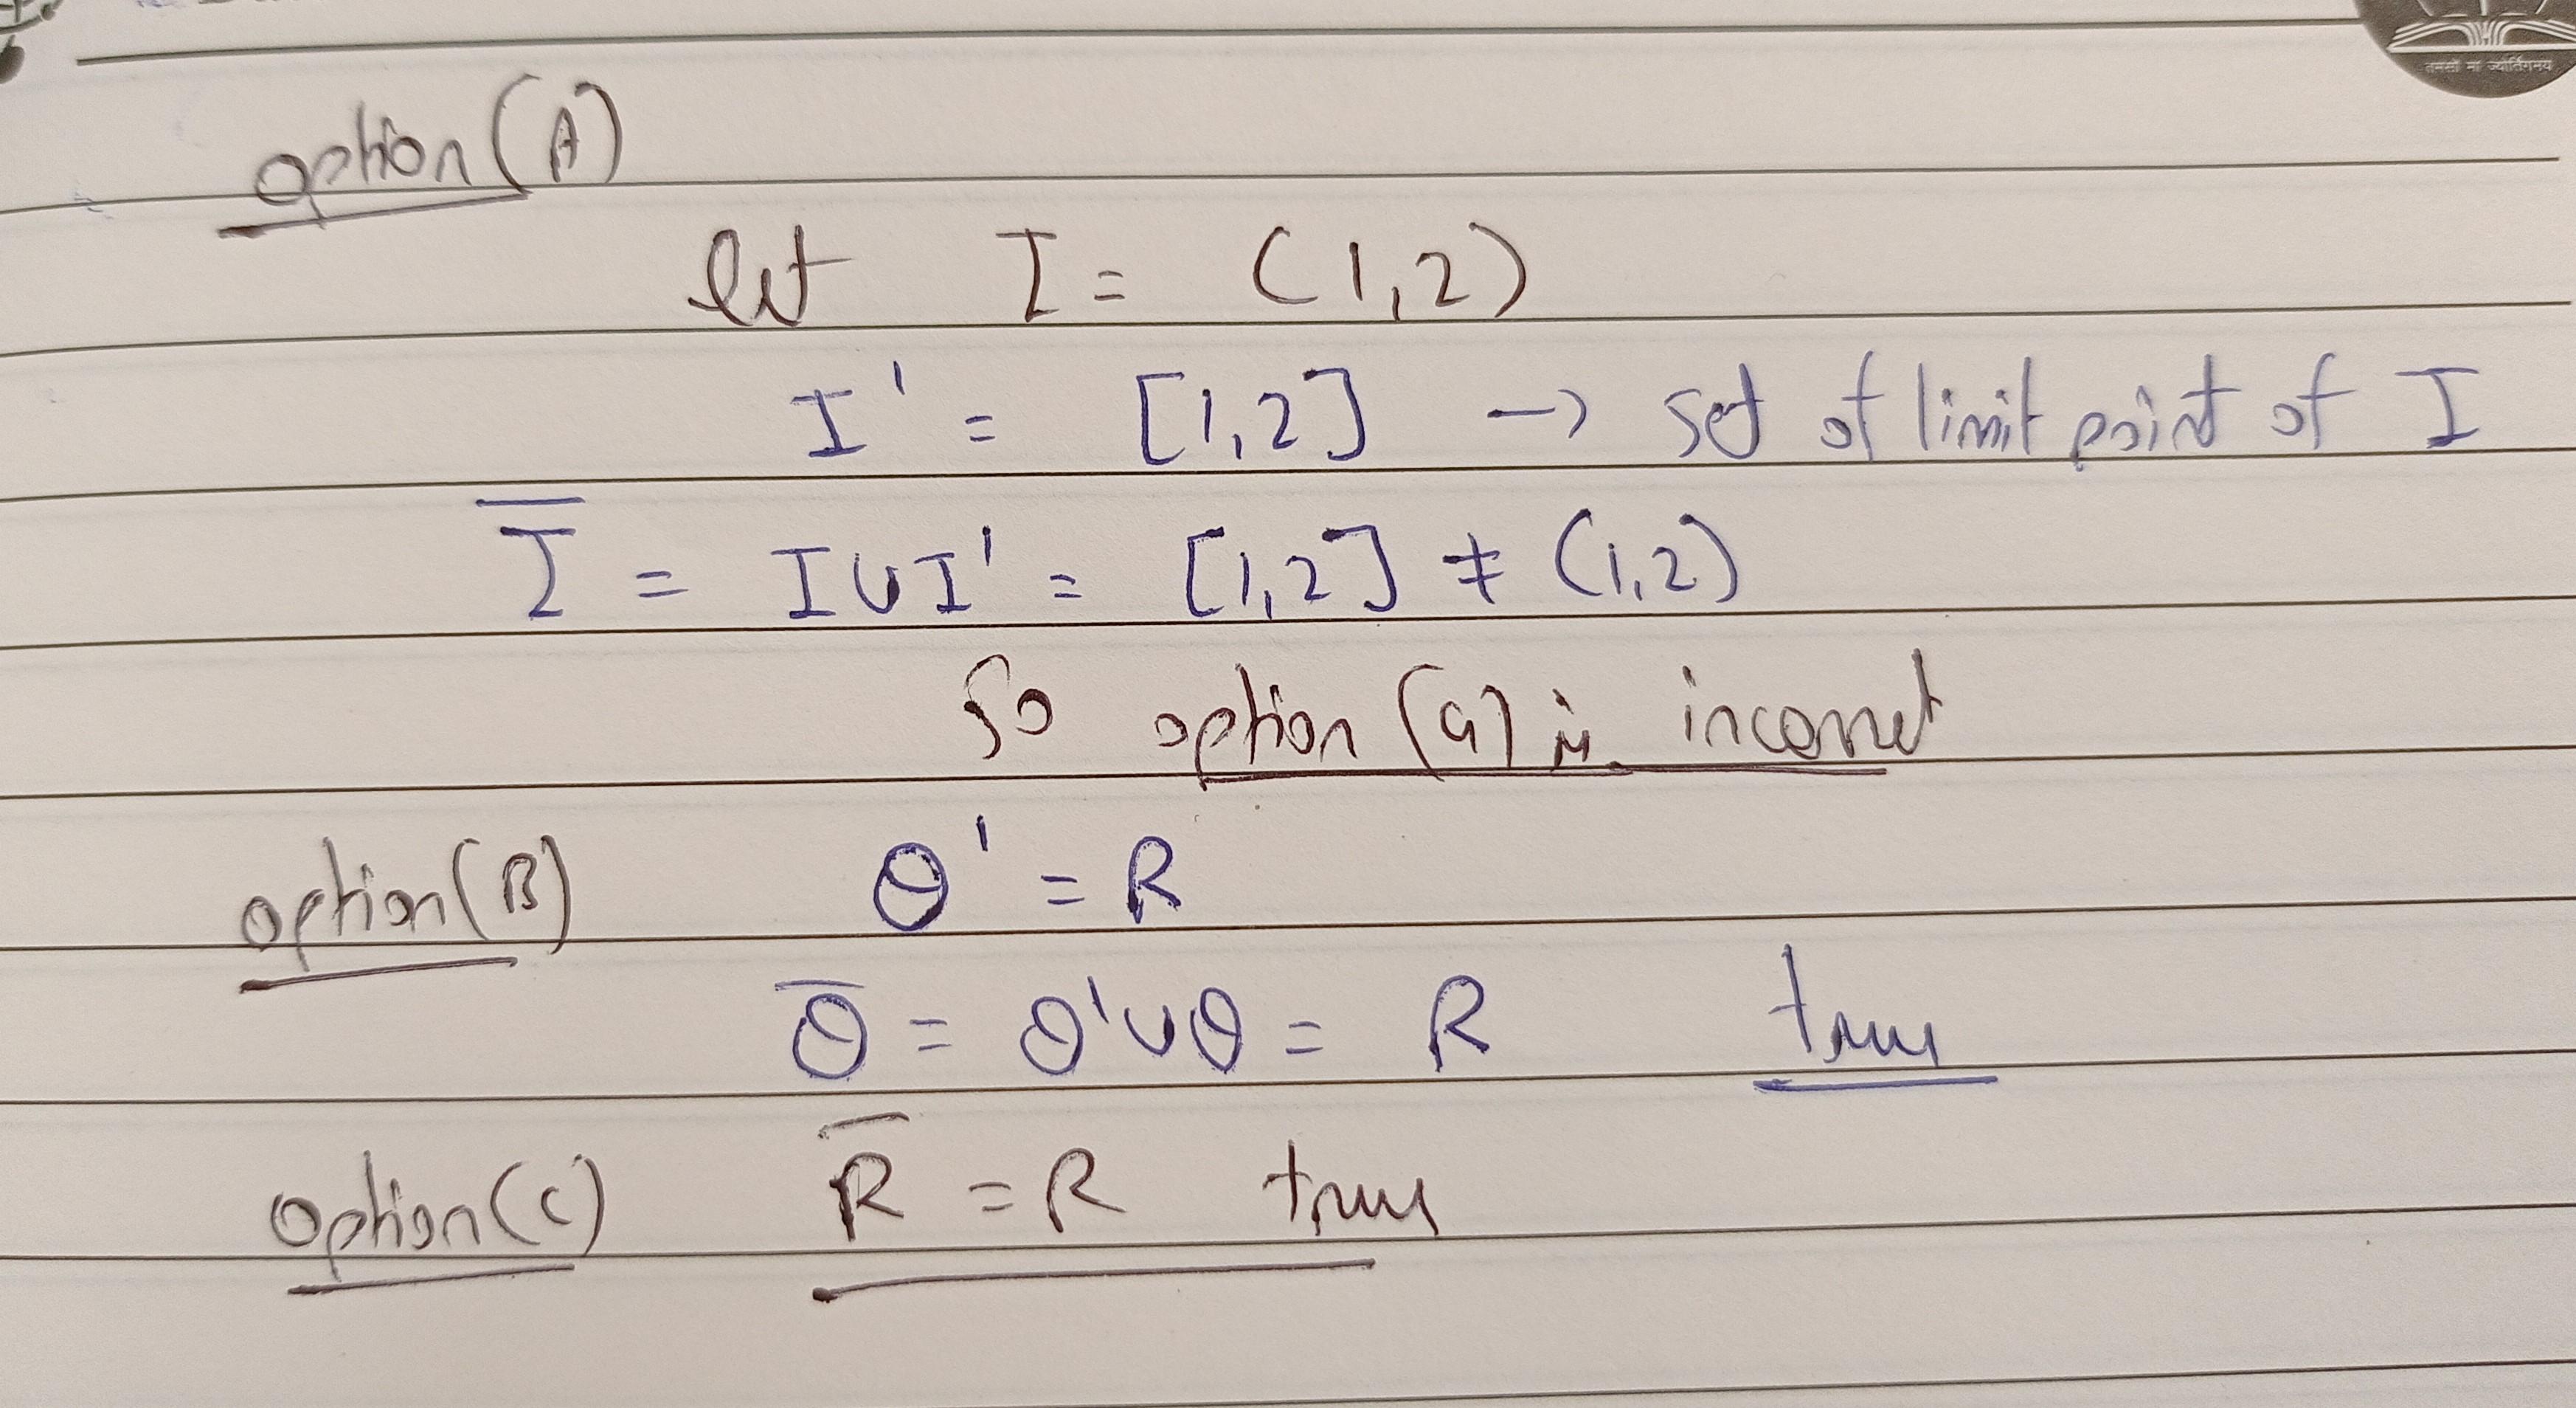 तमसो मा ज्योतिर्गमय
option (A)
let I = (1,2)
I' = [1,2] → set of limit point of I
I̅ = I∪I' = [1,2] ≠ (1,2)
So option (a) is incorrect
option (B) Q' = R
Q̅ = Q'∪Q = R true
option (C) R̅ = R true